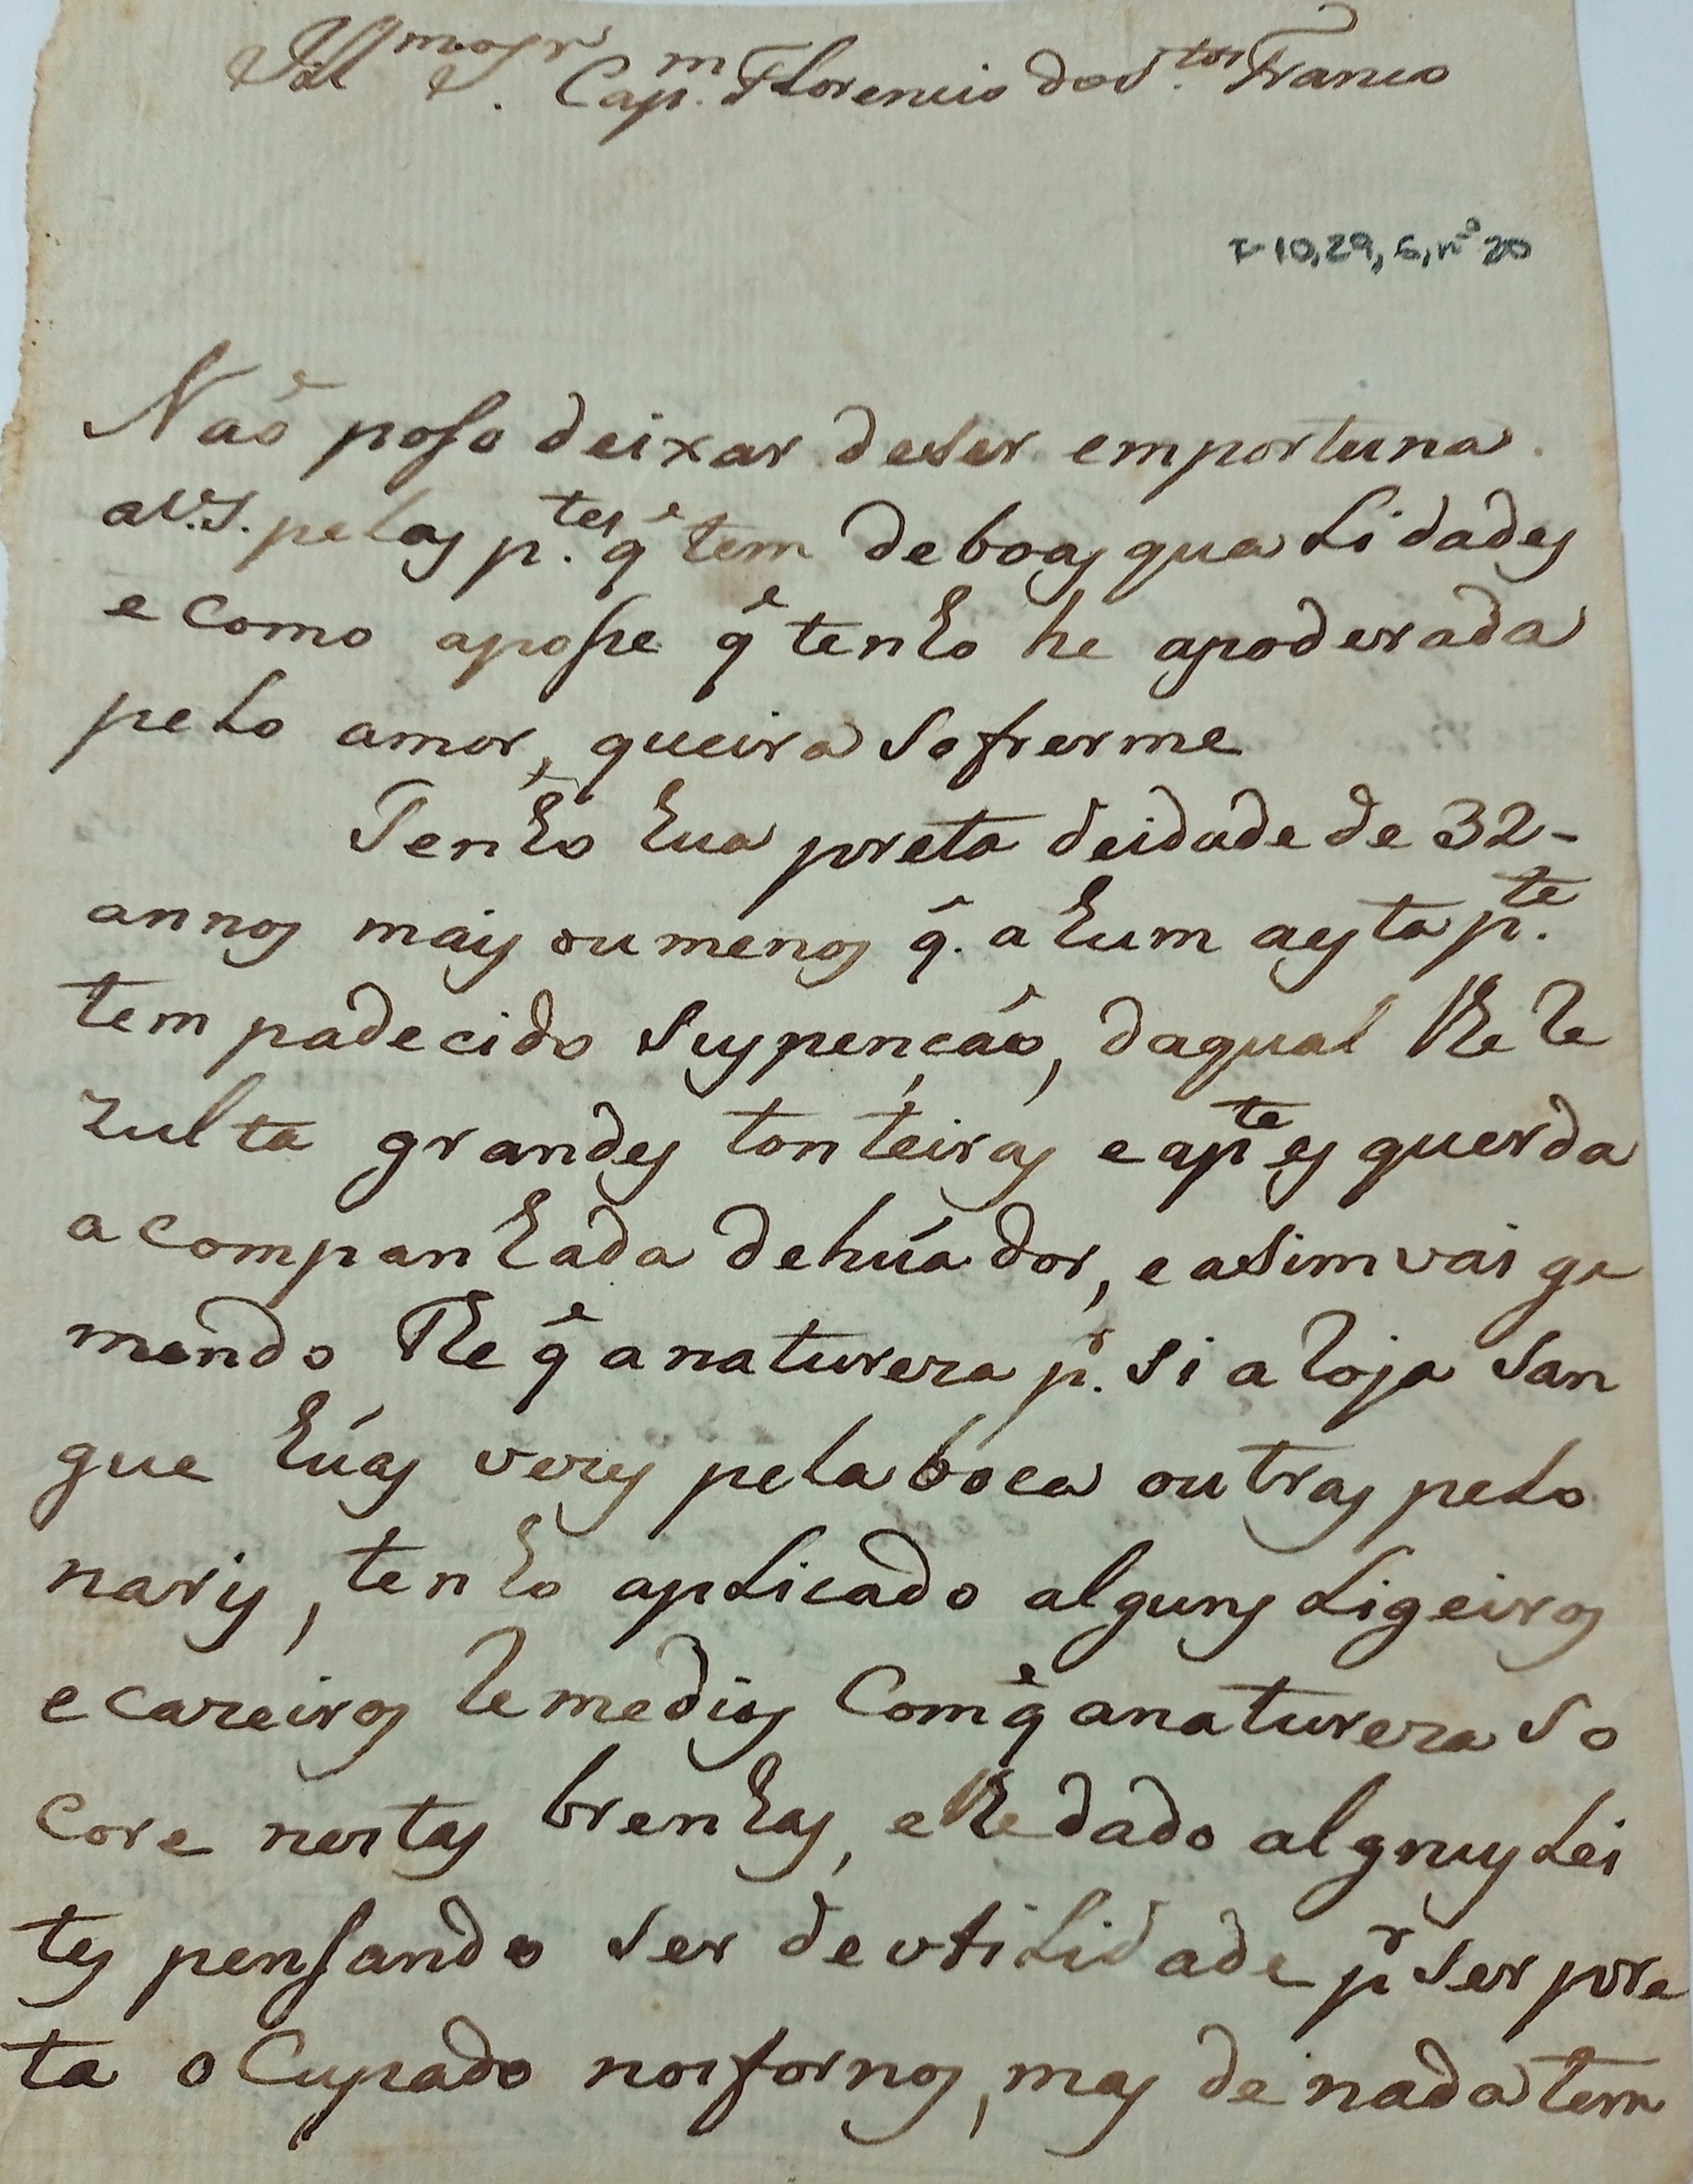 Ill.mo Sr. Cap.m Florencio dos S.tos Franco
I-10,29,5, nº 20
Naõ poso deixar deser emportuna
aV.S. pelas p.tes q̃ tem deboas qualidades
e como aposse q̃ tenho he apoderada
pelo amor, queira sofrerme
Tenho hua preta deidade de 32-
annos mais ou menos q̃. a hum aesta p.te
tem padecido suspençaõ, daqual lhe Re
zulta grandes tonteiras eap.te esquerda
acompanhada dehúa dor, easim vai ge
mendo the q̃ anatureza p.r si aloja san
gue húas vezes pela boca outras pelo
naris, tenho aplicado alguns ligeiros
ecazeiros Remedios Comq̃ anatureza so
core nestas brenhas, elhe dado alguns Lei
tes pensando ser deutilidade p.r ser pre
ta oCupado nos fornos, mas de nada tem